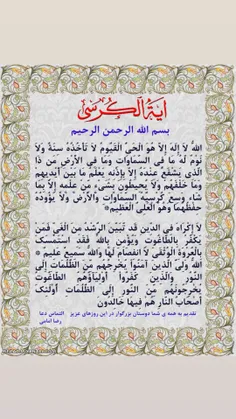 آیة الکرسی
بسم الله الرحمن الرحیم
اللّهُ لاَ إِلَهَ إِلاَّ هُوَ الْحَيُّ الْقَيُّومُ لاَ تَأْخُذُهُ سِنَةٌ وَلاَ
نَوْمٌ لَّهُ مَا فِي السَّمَاوَاتِ وَمَا فِي الأَرْضِ مَن ذَا
الَّذِي يَشْفَعُ عِنْدَهُ إِلاَّ بِإِذْنِهِ يَعْلَمُ مَا بَيْنَ أَيْدِيهِمْ
وَمَا خَلْفَهُمْ وَلاَ يُحِيطُونَ بِشَيْءٍ مِّنْ عِلْمِهِ إِلاَّ بِمَا
شَاء وَسِعَ كُرْسِيُّهُ السَّمَاوَاتِ وَالأَرْضَ وَلاَ يَؤُودُهُ
حِفْظُهُمَا وَهُوَ الْعَلِيُّ الْعَظِيمُ*
لاَ إِكْرَاهَ فِي الدِّينِ قَد تَّبَيَّنَ الرُّشْدُ مِنَ الْغَيِّ فَمَنْ
يَكْفُرْ بِالطَّاغُوتِ وَيُؤْمِن بِاللّهِ فَقَدِ اسْتَمْسَكَ
بِالْعُرْوَةِ الْوُثْقَىَ لاَ انفِصَامَ لَهَا وَاللّهُ سَمِيعٌ عَلِيمٌ*
اللّهُ وَلِيُّ الَّذِينَ آمَنُواْ يُخْرِجُهُم مِّنَ الظُّلُمَاتِ إِلَى
النُّوُرِ وَالَّذِينَ كَفَرُواْ أَوْلِيَآؤُهُمُ الطَّاغُوتُ
يُخْرِجُونَهُم مِّنَ النُّورِ إِلَى الظُّلُمَاتِ أُوْلَئِكَ
أَصْحَابُ النَّارِ هُمْ فِيهَا خَالِدُونَ
تقدیم به همه ی شما دوستان بزرگوار در این روزهای عزیز التماس دعا
رضا امامی